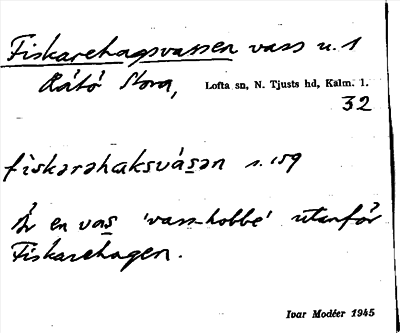 Fiskarehagsvassen vass u. 1
Råtö Stora, Lofta sn, N. Tjusts hd, Kalm. l.
32
fiskarəhaksvásən s. 159
Är en vas 'vass-hobbe' utanför
Fiskarehagen.
Ivar Modéer 1945